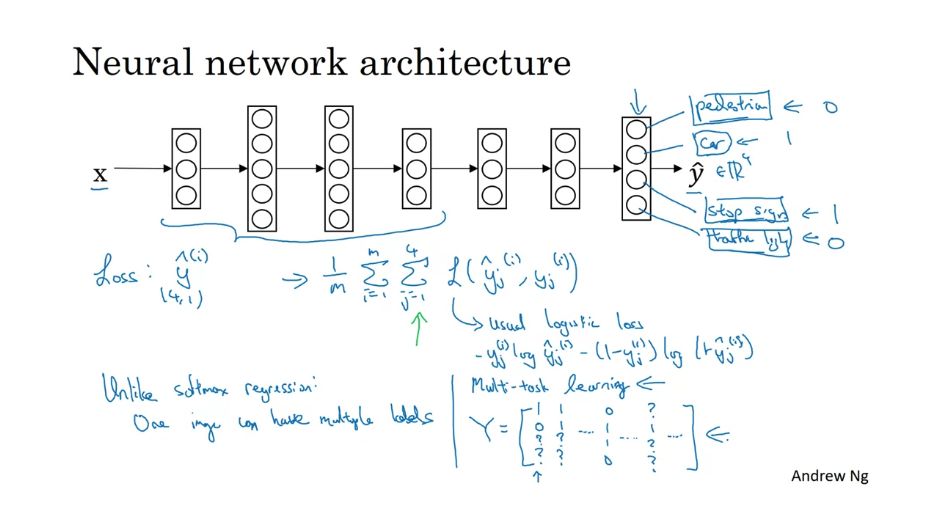 Neural network architecture
pedestrian ← 0
car ← 1
x
ŷ ∈ ℝ⁴
stop sign ← 1
traffic light ← 0
Loss: ŷ^(i) → 1/m Σ_{i=1}^{m} Σ_{j=1}^{4} L(ŷ_j^(i), y_j^(i))
(4,1)
usual logistic loss
- y_j^(i) log ŷ_j^(i) - (1-y_j^(i)) log (1-ŷ_j^(i))
Unlike softmax regression:
One image can have multiple labels
Multi-task learning ←
1 1 0 ?
Y = [ 0 1 .... 1 1 .... ] ←
? ? .... 1 ?
? ? 0 ?
Andrew Ng